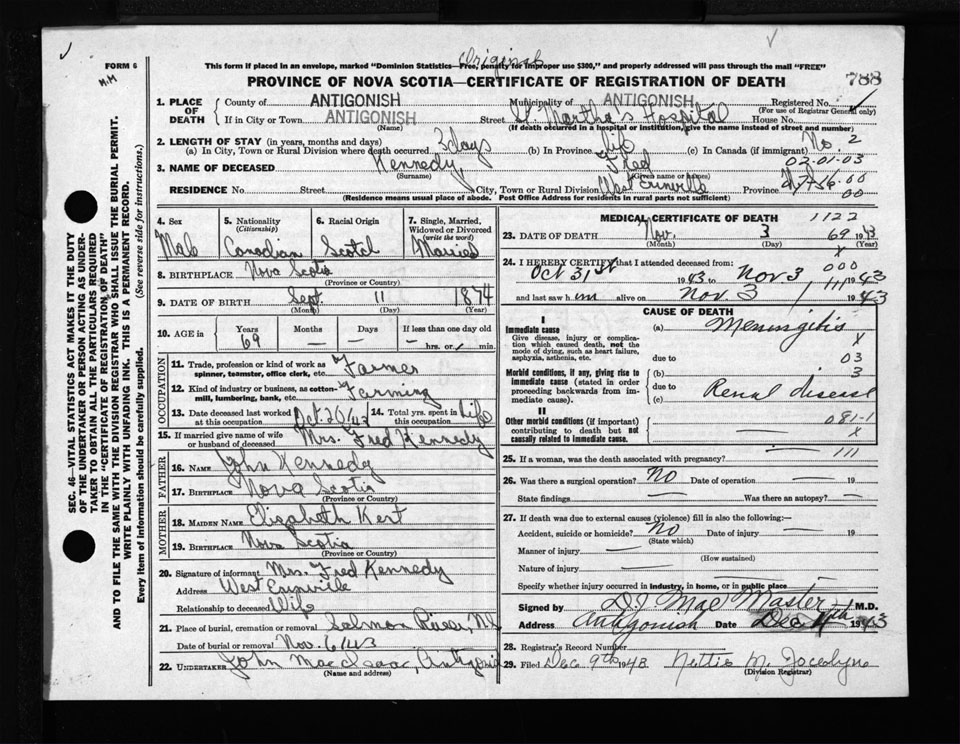 FORM 6
Original
This form if placed in an envelope, marked "Dominion Statistics—Free, penalty for improper use $300," and properly addressed will pass through the mail "FREE"
M.M
PROVINCE OF NOVA SCOTIA—CERTIFICATE OF REGISTRATION OF DEATH
788
1. PLACE OF DEATH
County of ANTIGONISH Municipality of ANTIGONISH Registered No.
(For use of Registrar General only)
If in City or Town ANTIGONISH Street St. Martha's Hospital House No.
(Name) (If death occurred in a hospital or institution, give the name instead of street and number)
2. LENGTH OF STAY (in years, months and days)
(a) In City, Town or Rural Division where death occurred 3 days (b) In Province life (c) In Canada (if immigrant) No. 2
3. NAME OF DECEASED Kennedy, Fred 02-01-03
(Surname) (Given name or names)
RESIDENCE No. Street City, Town or Rural Division West Erinville Province
(Residence means usual place of abode. Post Office Address for residents in rural parts not sufficient) 00
4. Sex Male
5. Nationality (Citizenship) Canadian
6. Racial Origin Scotch
7. Single, Married, Widowed or Divorced (write the word) Married
8. BIRTHPLACE Nova Scotia
(Province or Country)
9. DATE OF BIRTH Sept. 11 1874
(Month) (Day) (Year)
10. AGE in Years 69 Months — Days — If less than one day old — hrs. or min.
OCCUPATION
11. Trade, profession or kind of work as spinner, teamster, office clerk, etc. Farmer
12. Kind of industry or business, as cotton-mill, lumbering, bank, etc. Farming
13. Date deceased last worked at this occupation Oct. 20/43 14. Total yrs. spent in this occupation Life
15. If married give name of wife or husband of deceased Mrs. Fred Kennedy
FATHER
16. NAME John Kennedy
17. BIRTHPLACE Nova Scotia
(Province or Country)
MOTHER
18. MAIDEN NAME Elizabeth Kert
19. BIRTHPLACE Nova Scotia
(Province or Country)
20. Signature of informant Mrs. Fred Kennedy
Address West Erinville
Relationship to deceased Wife
21. Place of burial, cremation or removal Salmon River, N.S
Date of burial or removal Nov. 6/43
22. UNDERTAKER John MacIsaac, Antigonish
(Name and address)
MEDICAL CERTIFICATE OF DEATH 1122
23. DATE OF DEATH Nov. 3 69 1943
(Month) (Day) (Year)
X
24. I HEREBY CERTIFY that I attended deceased from: 000
Oct 31st 1943 to Nov 3 1943
and last saw him alive on Nov. 3 111 1943
CAUSE OF DEATH
I
Immediate cause
Give disease, injury or complication which caused death, not the mode of dying, such as heart failure, asphyxia, asthenia, etc.
(a) Meningitis
X
due to 03
Morbid conditions, if any, giving rise to immediate cause (stated in order proceeding backwards from immediate cause).
(b) 3
due to Renal disease
(c)
II
Other morbid conditions (if important) contributing to death but not causally related to immediate cause.
081-1
X
25. If a woman, was the death associated with pregnancy? 111
26. Was there a surgical operation? No Date of operation — 19
State findings — Was there an autopsy? —
27. If death was due to external causes (violence) fill in also the following:—
Accident, suicide or homicide? No Date of injury — 19
(State which)
Manner of injury —
(How sustained)
Nature of injury —
Specify whether injury occurred in industry, in home, or in public place
Signed by D.J. MacMaster M.D.
Address Antigonish Date Dec 4th 1943
28. Registrar's Record Number
29. Filed Dec 9th 1943 Nettie M. Jocelyne
(Division Registrar)
SEC. 46—VITAL STATISTICS ACT MAKES IT THE DUTY OF THE UNDERTAKER OR PERSON ACTING AS UNDERTAKER TO OBTAIN ALL THE PARTICULARS REQUIRED IN THE "CERTIFICATE OF REGISTRATION OF DEATH" AND TO FILE THE SAME WITH THE DIVISION REGISTRAR WHO SHALL ISSUE THE BURIAL PERMIT.
WRITE PLAINLY WITH UNFADING INK. THIS IS A PERMANENT RECORD.
Every item of information should be carefully supplied. (See reverse side for instructions.)